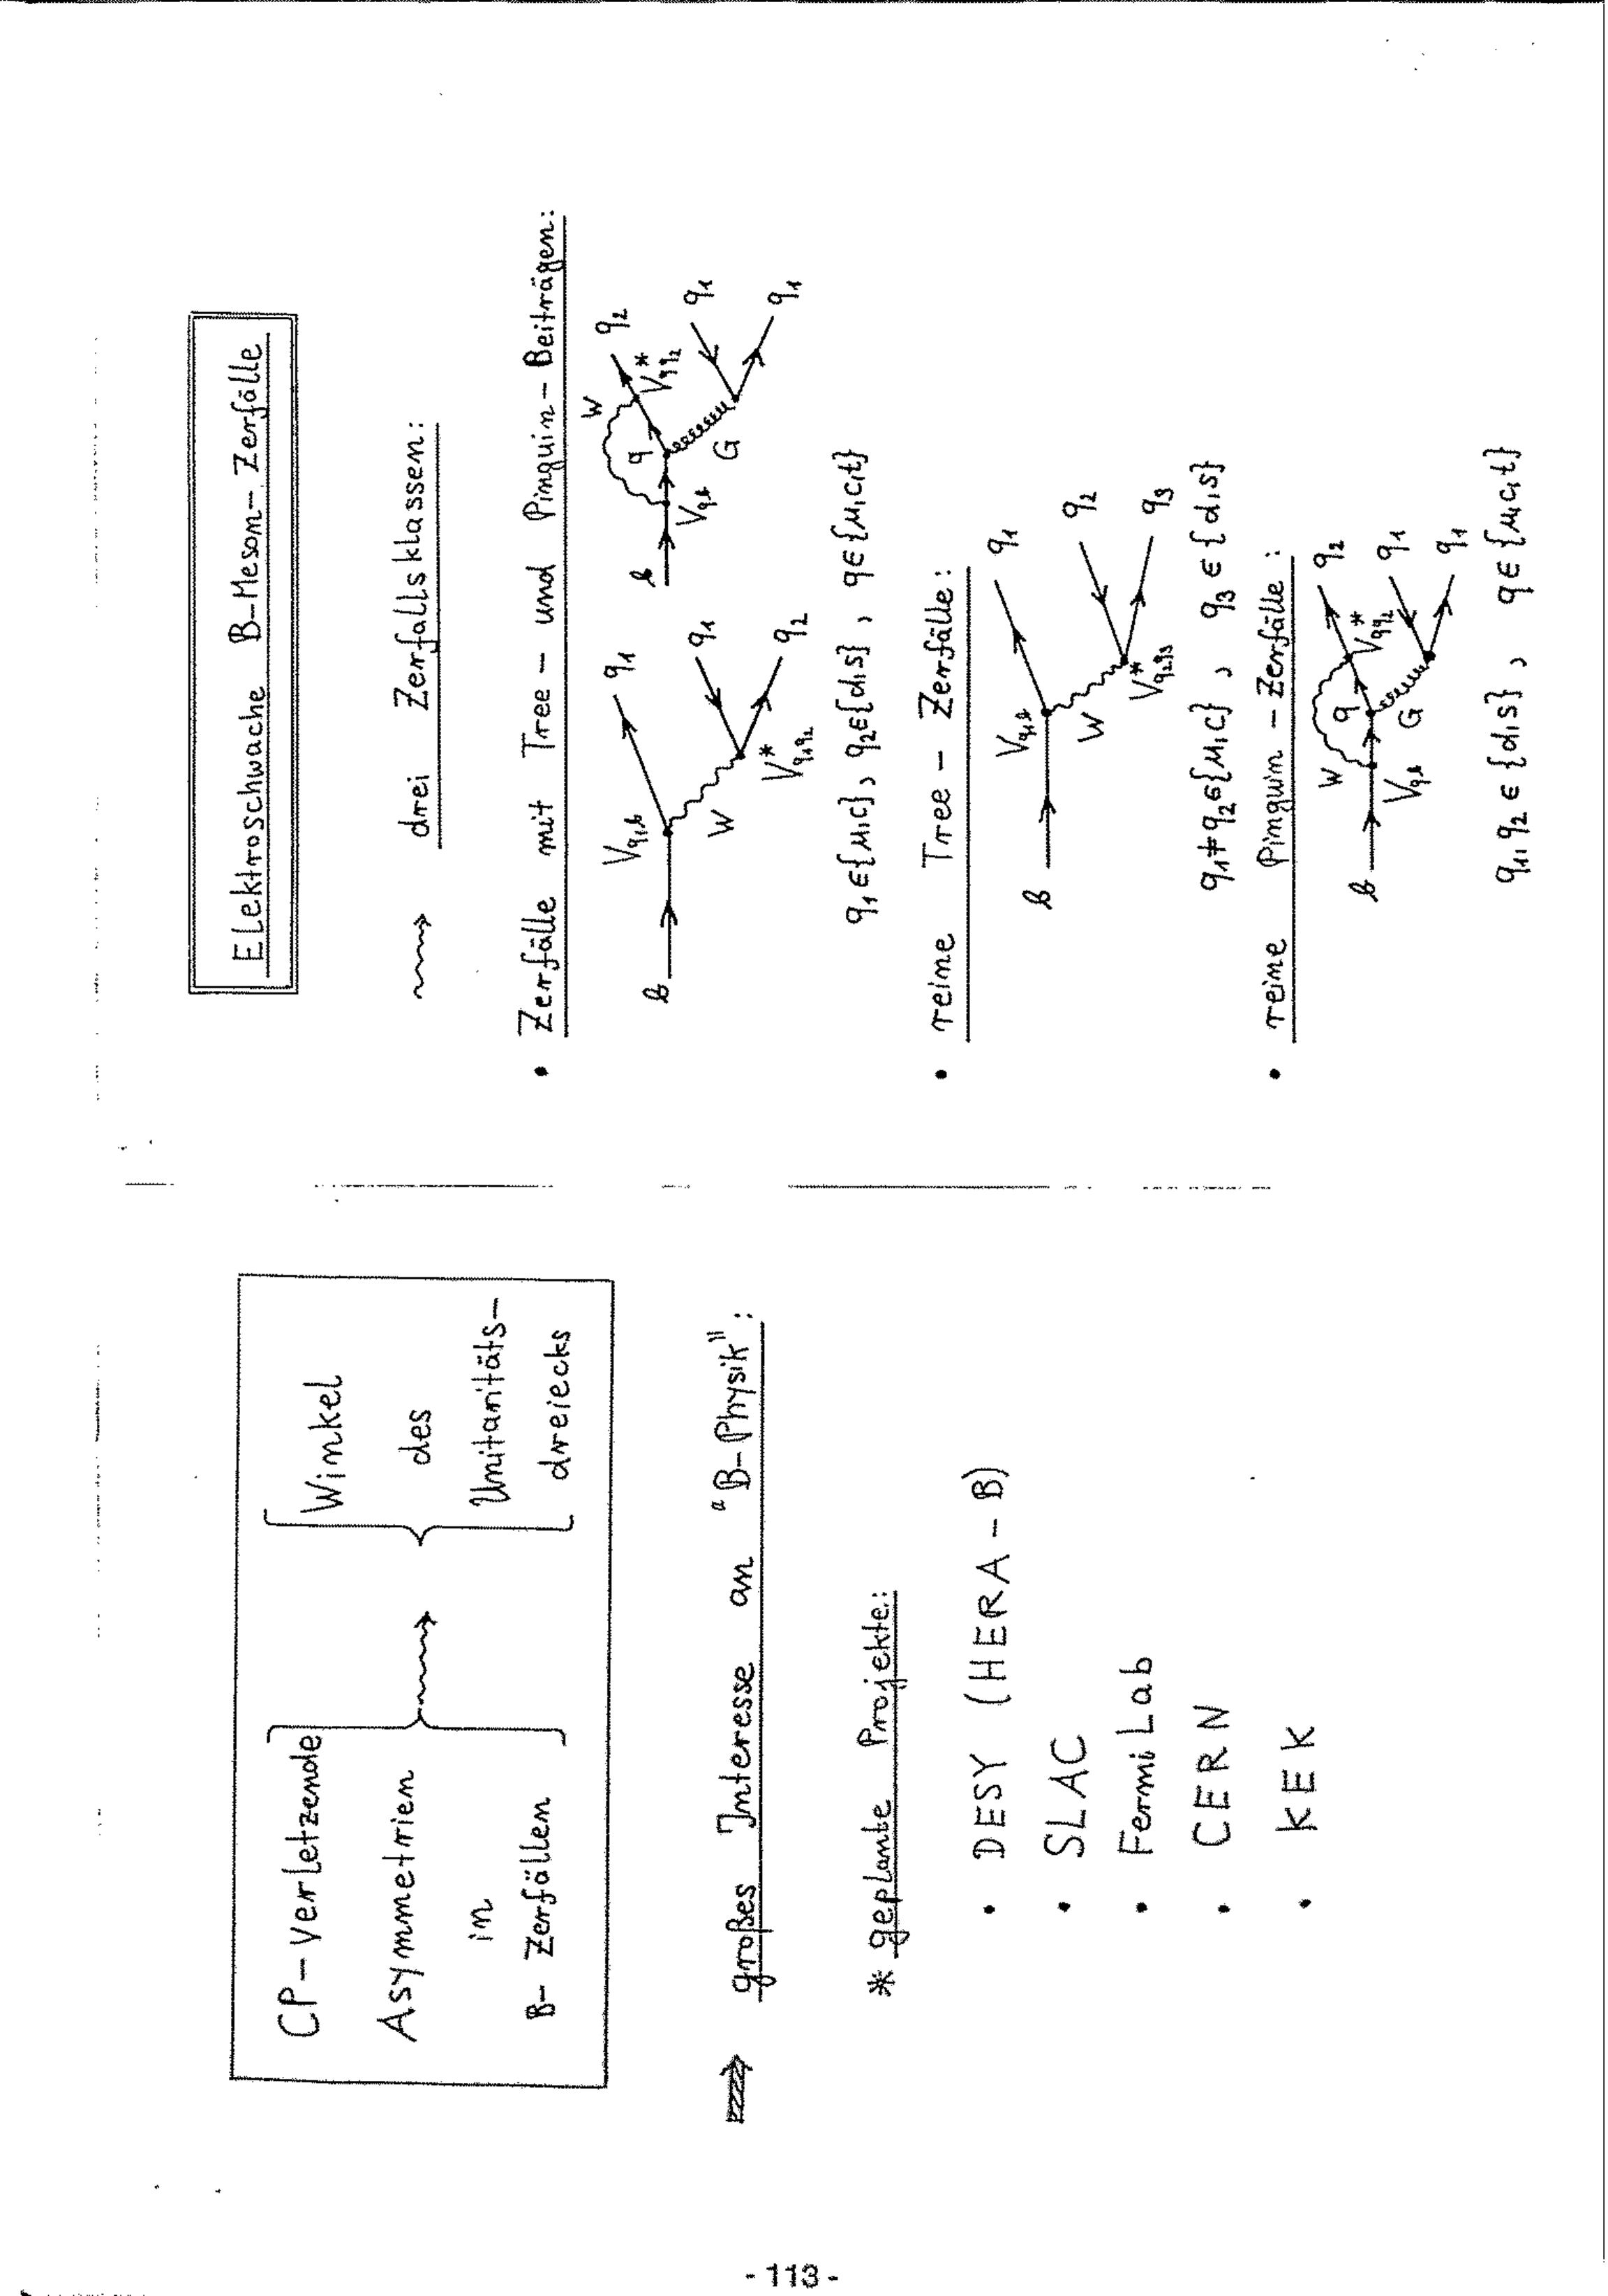 CP-verletzende
Asymmetrien
in
B-Zerfällen
Winkel
des
Unitaritäts-
dreiecks
großes Interesse an "B-Physik":
* geplante Projekte:
• DESY (HERA-B)
• SLAC
• FermiLab
• CERN
• KEK
Elektroschwache B-Meson-Zerfälle
drei Zerfallsklassen:
• Zerfälle mit Tree- und Pinguin-Beiträgen:
b V_{q1b} q1 W q1 V*_{q1q2} q2
b V_{qb} q W V*_{qq2} q2 G q1 q1
q1 ∈ {u,c}, q2 ∈ {d,s}, q ∈ {u,c,t}
• reine Tree-Zerfälle:
b V_{q1b} q1 W q2 V*_{q2q3} q3
q1 ≠ q2 ∈ {u,c}, q3 ∈ {d,s}
• reine Pinguin-Zerfälle:
b V_{qb} q W V*_{qq2} q2 G q1 q1
q1, q2 ∈ {d,s}, q ∈ {u,c,t}
- 113 -